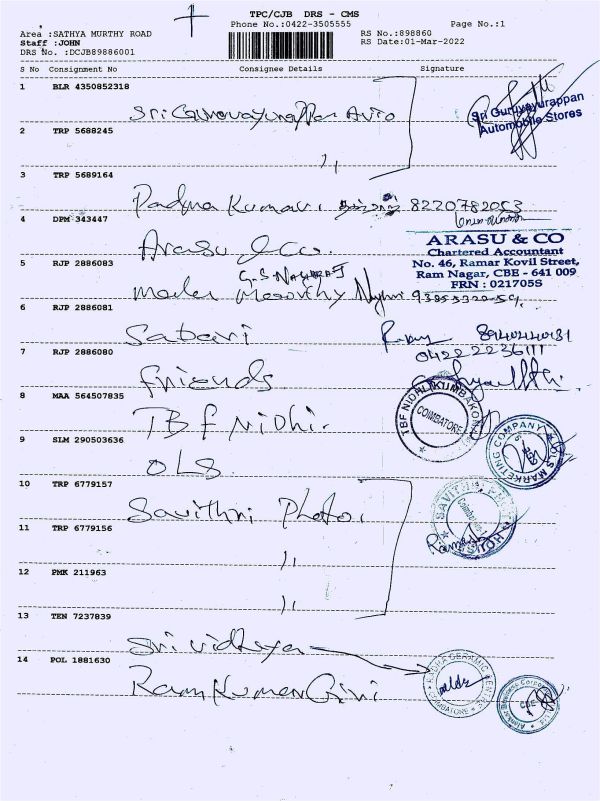 TPC/CJB DRS - CMS
Phone No.:0422-3505555
Page No.:1
Area :SATHYA MURTHY ROAD
Staff :JOHN
DRS No. :DCJB89886001
RS No.:898860
RS Date:01-Mar-2022
S No Consignment No Consignee Details Signature
1 BLR 4350852318
Sri Guruvayurappan Auto
Sri Guruvayurappan
Automobile Stores
2 TRP 5688245
,,
3 TRP 5689164
Padma Kumari 8220782053
4 DPM 343447
Arasu & Co.
ARASU & CO
Chartered Accountant
No. 46, Ramar Kovil Street,
Ram Nagar, CBE - 641 009
FRN : 021705S
5 RJP 2886083
G.S Nagaraj
6 RJP 2886081
Sabari
7 RJP 2886080
04222236111
friends
8 MAA 564507835
TBF Nidhi.
TBF NIDHI (KUMBAKONAM)
COIMBATORE
9 SLM 290503636
OLS
OLS MARKETING COMPANY
10 TRP 6779157
Savithri Photo,
SAVITHRI PHOTO HOUSE
11 TRP 6779156
,,
12 PMK 211963
,,
13 TEN 7237839
Sri vidhya
14 POL 1881630
Ram Kumar Giri
CERAMIC CENTRE
COIMBATORE
CBE